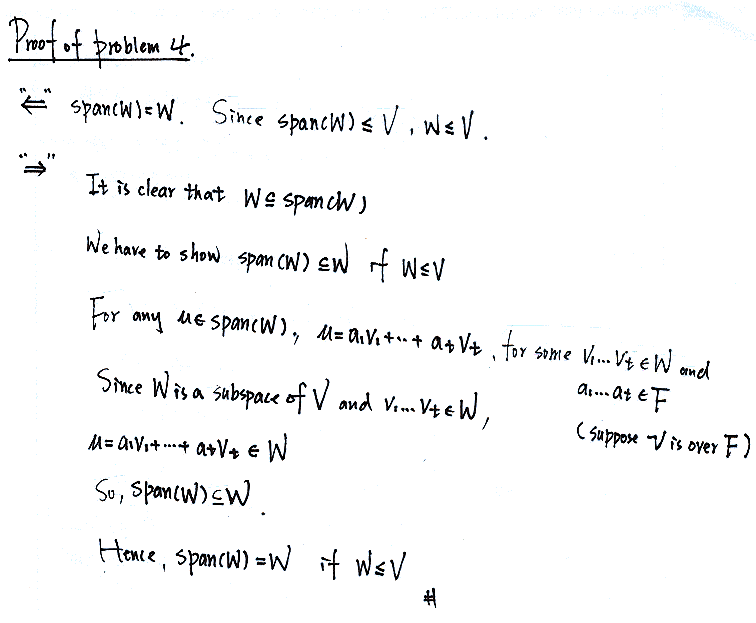 Proof of problem 4.
"⇐" span(W)=W. Since span(W) ≤ V, W ≤ V.
"⇒"
It is clear that W ⊆ span(W)
We have to show span(W) ⊆ W if W ≤ V
For any u ∈ span(W), u = a₁v₁+...+ aₜvₜ, for some v₁...vₜ ∈ W and
a₁...aₜ ∈ F
Since W is a subspace of V and v₁...vₜ ∈ W,
(suppose V is over F)
u = a₁v₁+...+ aₜvₜ ∈ W
So, span(W) ⊆ W.
Hence, span(W) = W if W ≤ V
#